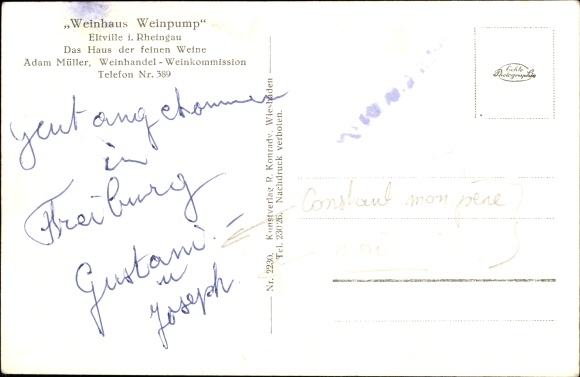 „Weinhaus Weinpump“
Eltville i. Rheingau
Das Haus der feinen Weine
Adam Müller, Weinhandel-Weinkommission
Telefon Nr. 389
angekommen
in
Freiburg
u
Joseph.
Nr. 2230. Kunstverlag R. Konrady, Wiesbaden
Tel. 23026. Nachdruck verboten.
Echte
Photographie
Constant mon père